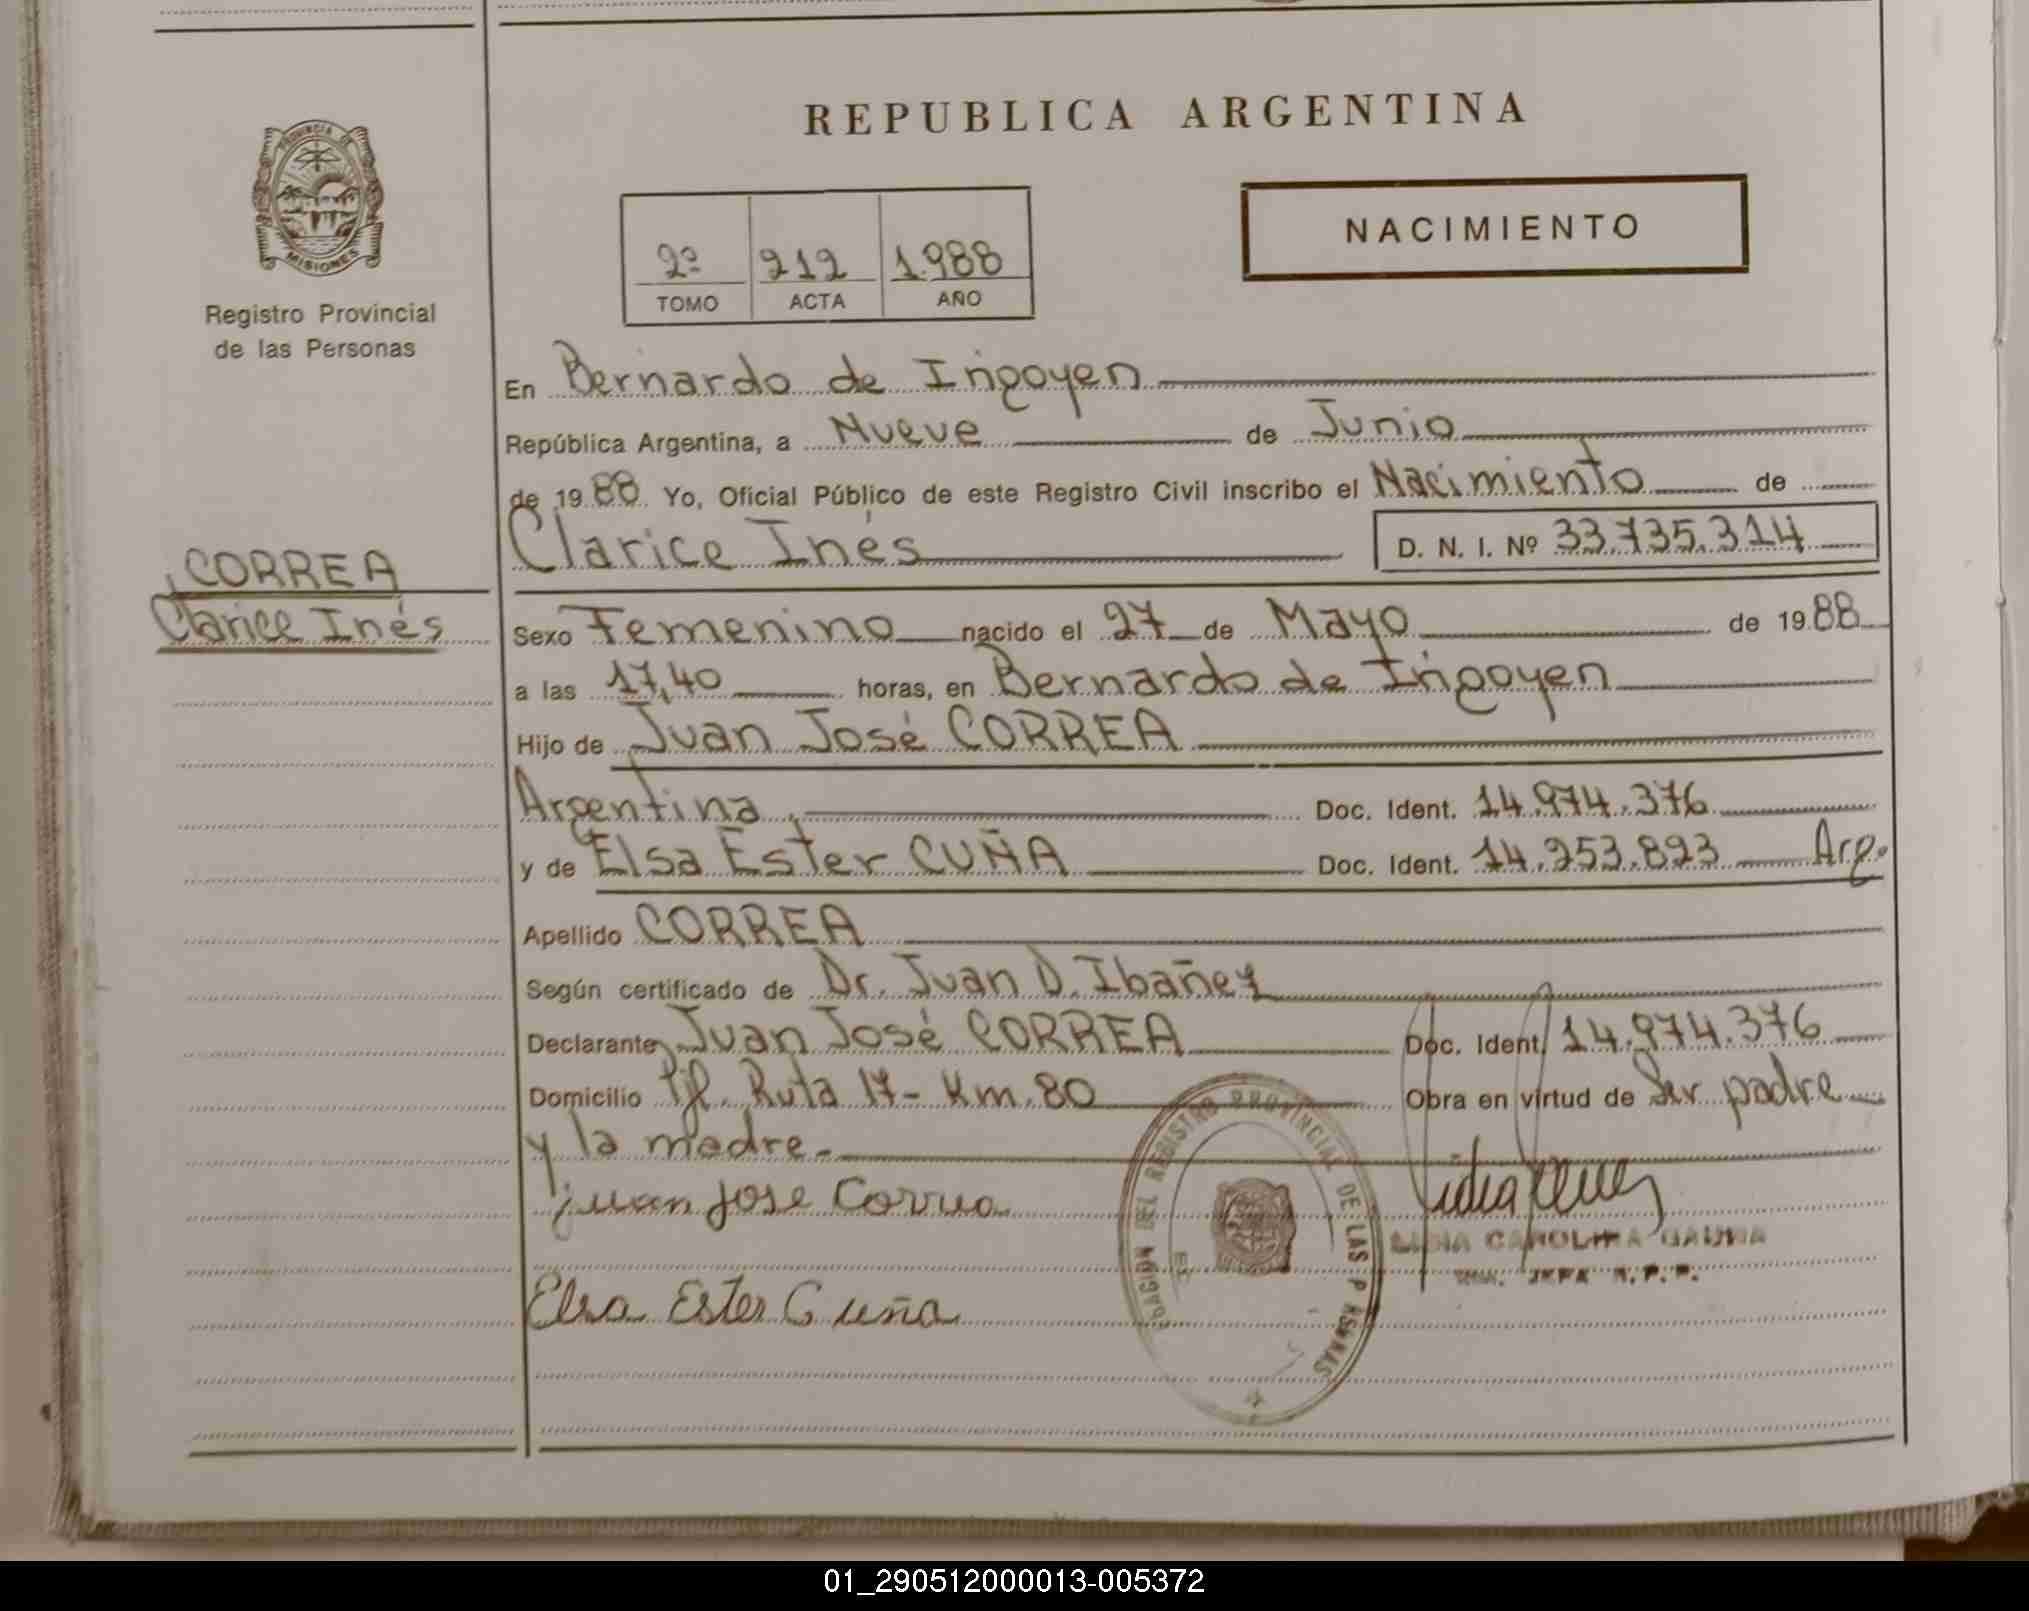 REPUBLICA ARGENTINA
PROVINCIA DE
MISIONES
Registro Provincial
de las Personas
2º 212 1.988
TOMO ACTA AÑO
NACIMIENTO
En Bernardo de Irigoyen
República Argentina, a Nueve de Junio
de 1988 Yo, Oficial Público de este Registro Civil inscribo el Nacimiento de
Clarice Inés D. N. I. Nº 33.735.314
CORREA
Clarice Inés
Sexo Femenino nacido el 27 de Mayo de 1988
a las 17,40 horas, en Bernardo de Irigoyen
Hijo de Juan José CORREA
Argentina, Doc. Ident. 14.974.376
y de Elsa Ester CUÑA Doc. Ident. 14.253.823 Arg.
Apellido CORREA
Según certificado de Dr. Juan D. Ibañez
Declarante Juan José CORREA Doc. Ident. 14.974.376
Domicilio Ruta 17- Km. 80 Obra en virtud de Ser padre
y la madre.-
juan jose Correa
CAROLINA GAUNA
JEFA R.P.P.
Elsa Ester Cuña
DEL REGISTRO PROVINCIAL DE LAS P RSONAS
01_290512000013-005372